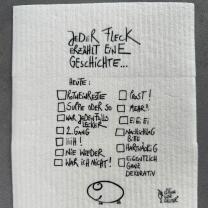 JEDER FLECK
ERZÄHLT EINE
GESCHICHTE...
HEUTE:
ROTWEINRESTE
SUPPE ODER SO
WAR JEDENFALLS
LECKER
2. GANG
IIIH!
NIE WIEDER
WAR ICH NICHT!
PROST!
MEHR!
EI EI
NACHSCHLAG
BITTE
HARTNÄCKIG
EIGENTLICH
GANZ
DEKORATIV